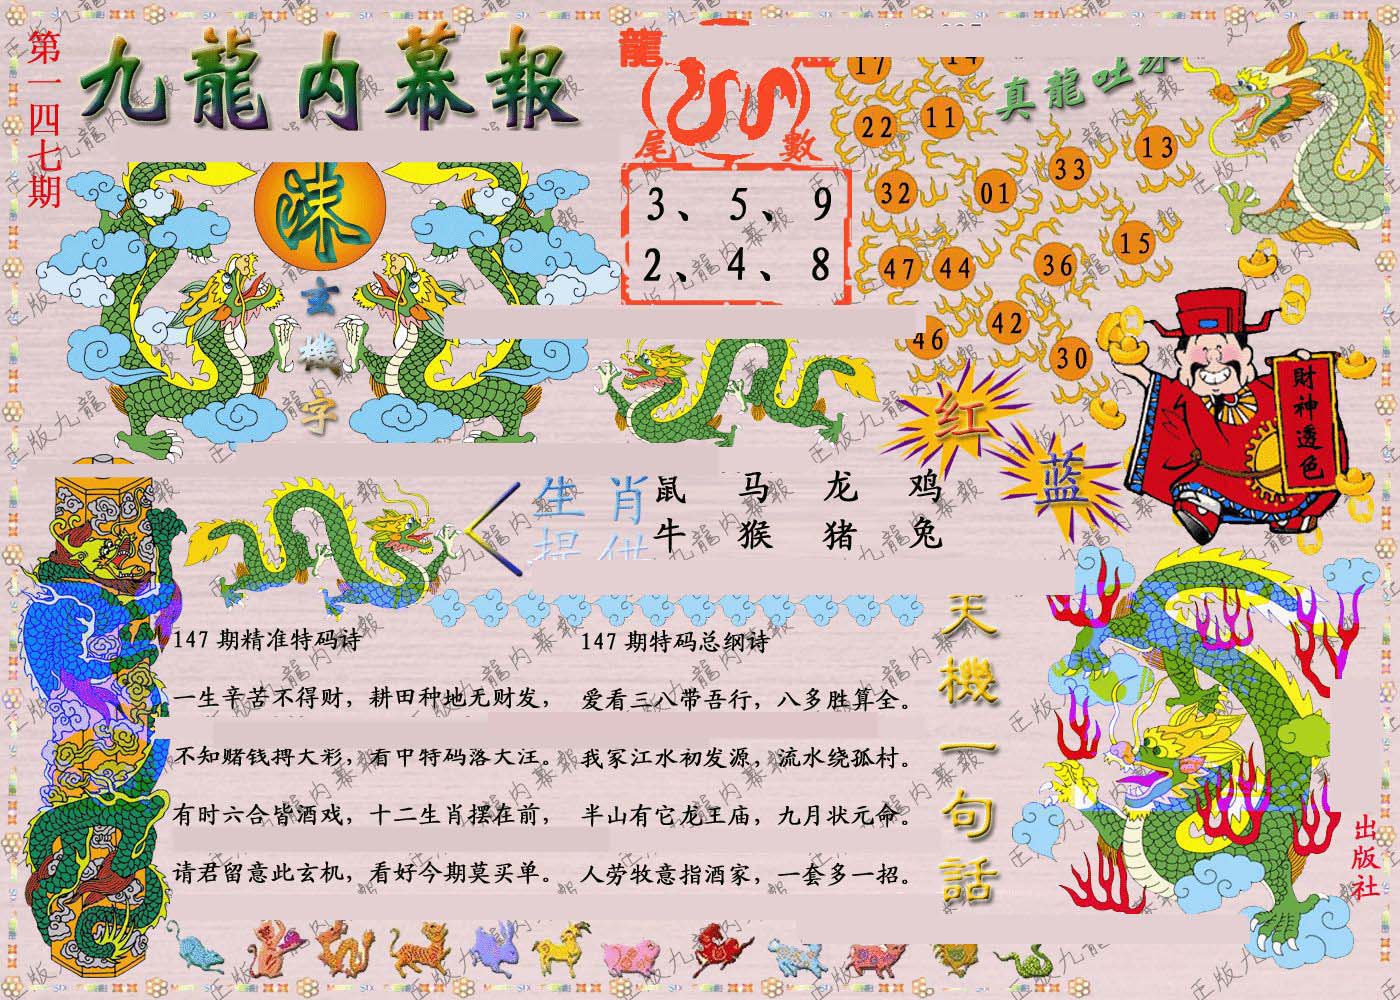 第一四七期
九龍内幕報
玄機字
龍
尾數
3、5、9
2、4、8
真龍吐
17
22
11
13
33
32
01
15
47
44
36
42
46
30
红
蓝
財神透色
生肖
鼠 马 龙 鸡
牛 猴 猪 兔
147期精准特码诗
一生辛苦不得财，耕田种地无财发，
不知赌钱搏大彩，看中特码落大汪。
有时六合皆酒戏，十二生肖摆在前，
请君留意此玄机，看好今期莫买单。
147期特码总纲诗
爱看三八带吾行，八多胜算全。
我冢江水初发源，流水绕孤村。
半山有它龙王庙，九月状元命。
人劳牧意指酒家，一套多一招。
天機一句話
出版社
正版九龍内幕報